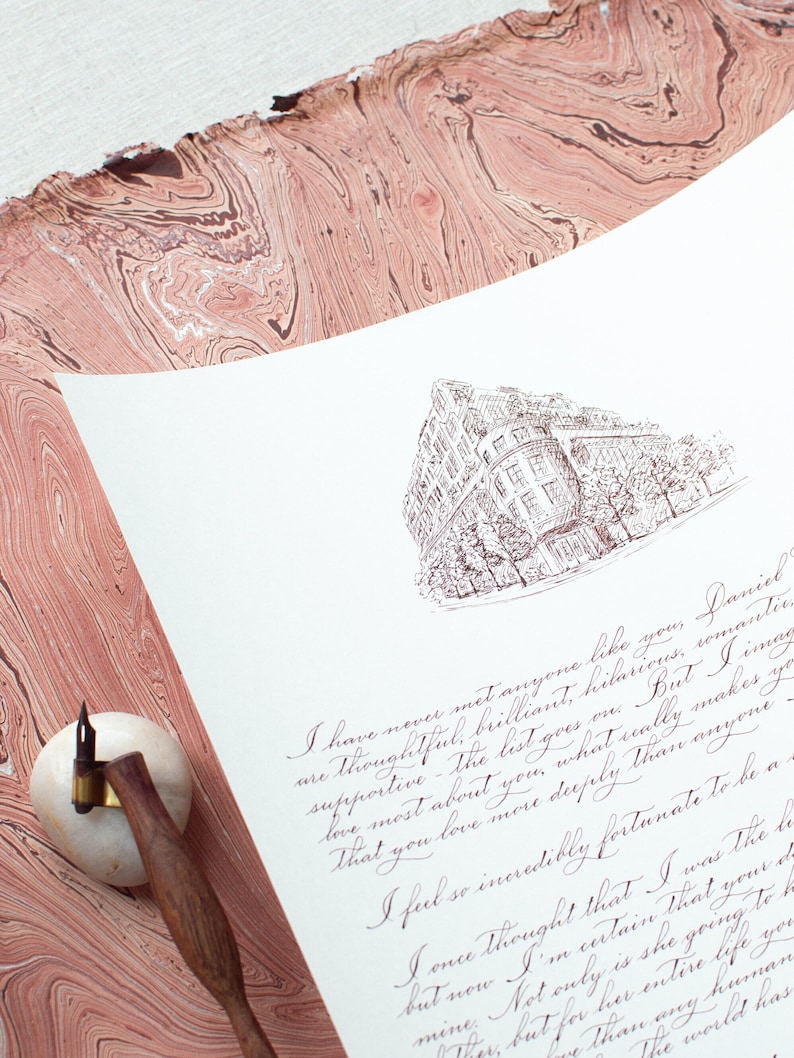 I have never met anyone like you, Daniel
are thoughtful, brilliant, hilarious, romantic,
supportive - the list goes on. But I imag
love most about you, what really makes yo
that you love more deeply than anyone -
I feel so incredibly fortunate to be a
I once thought that I was the lu
but now I'm certain that your d
mine. Not only is she going to h
ther, but for her entire life you
ove than any human
the world has